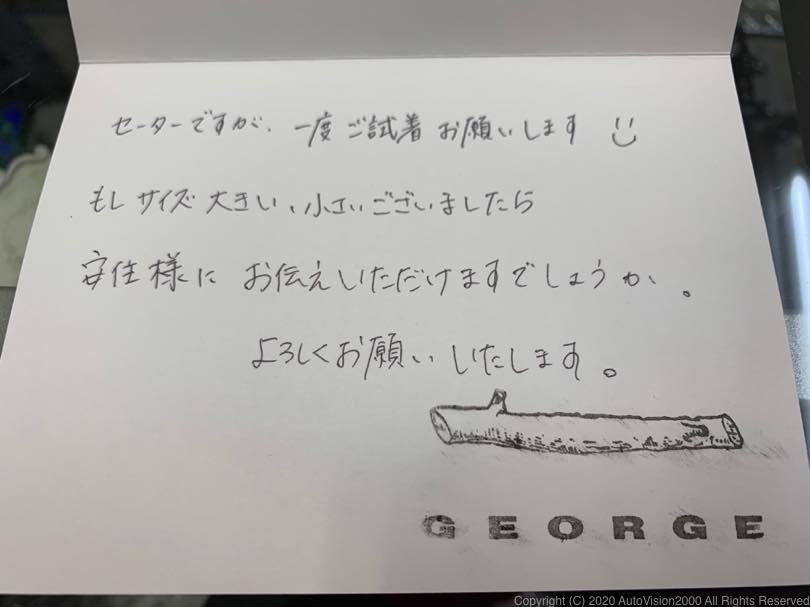 セーターですが、一度ご試着お願いします
もしサイズ大きい、小さいございましたら
安住様にお伝えいただけますでしょうか。
よろしくお願いいたします。
GEORGE
Copyright (C) 2020 AutoVision2000 All Rights Reserved